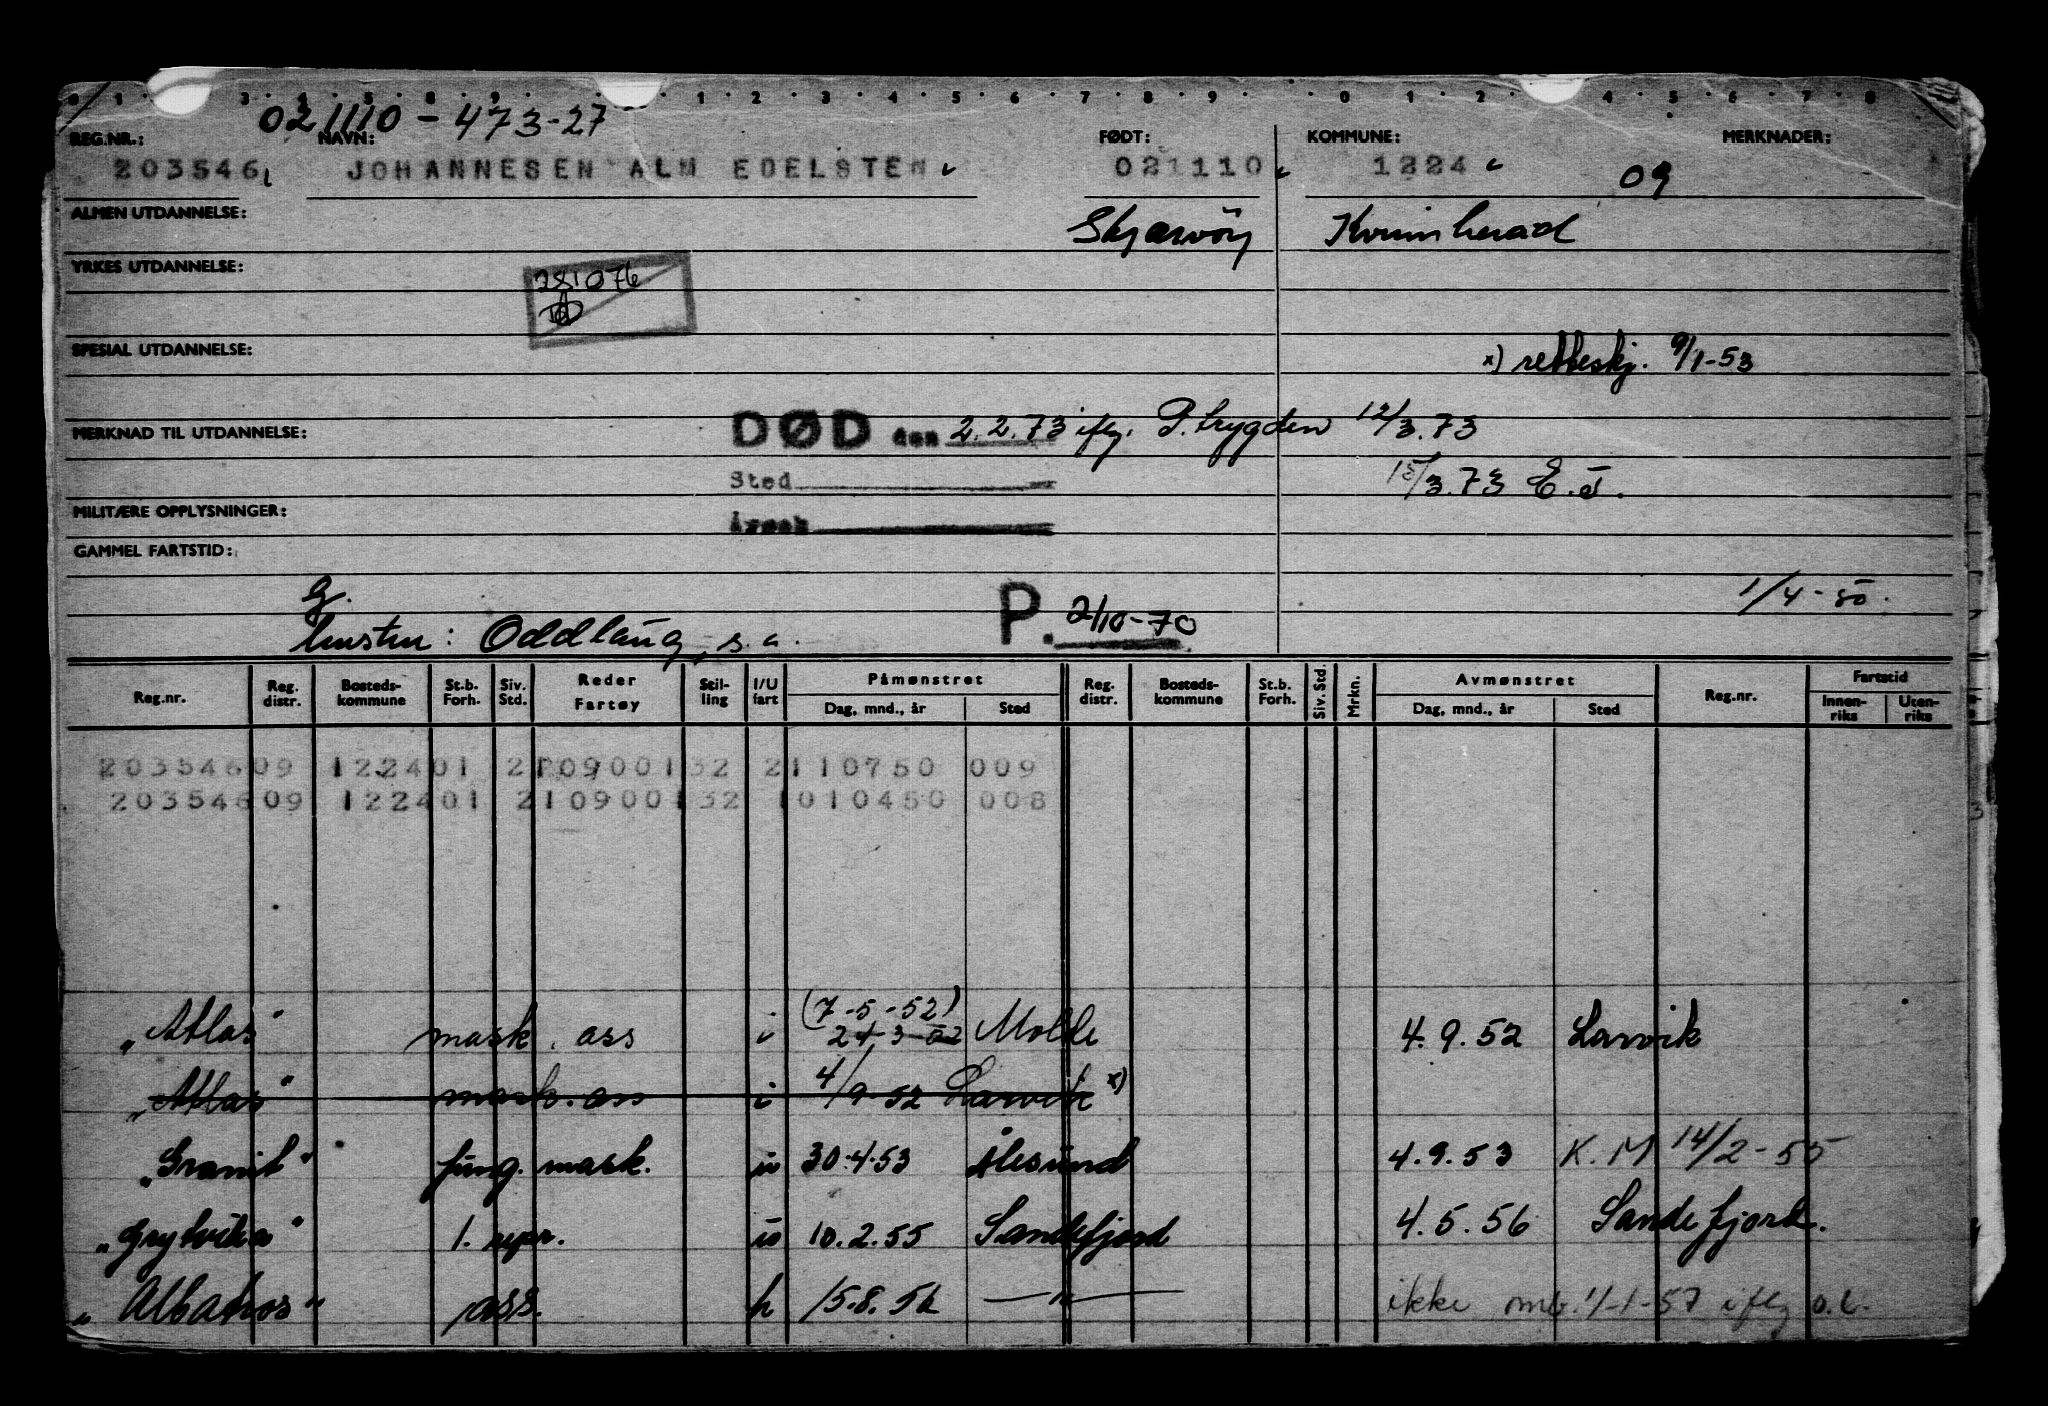 021110 - 473-27
REG.NR.: NAVN: FØDT: KOMMUNE: MERKNADER:
203546 JOHANNESEN ALM EDELSTEN 021110 1224 09
ALMEN UTDANNELSE: Skjærvöy Kvinnherad
YRKES UTDANNELSE: 281076
SPESIAL UTDANNELSE: x) retteskj. 9/1-53
MERKNAD TIL UTDANNELSE: DØD den 2.2.73 ifly. P.trygden 12/3.73
Sted 15/3.73 E.J.
MILITÆRE OPPLYSNINGER: Årsak
GAMMEL FARTSTID:
g. P. 2/10-70 1/4-50.
hustru: Oddlaug, s.a.
Reg.nr. Reg. distr. Bosteds-kommune St.b. Forh. Siv. Std. Reder Fartøy Stil-ling I/U fart Påmønstret Dag, mnd., år Sted Reg. distr. Bosteds-kommune St.b. Forh. Siv. Std. Mrkn. Avmønstret Dag, mnd., år Sted Reg.nr. Fartstid Innen-riks Uten-riks
203546 09 1224 01 2109001 32 2 110750 009
203546 09 1224 01 2109001 32 1 010450 008
(7-5-52)
"Atlas" mask. ass i 24-3-52 Molde 4.9.52 Larvik
"Atlas" mask. ass i 4/9-52 Larvik x)
"Granit" fung. mask. u 30.4.53 Ålesund 4.9.53 K.M 14/2-55
"Grytviken" 1. repr. u 10.2.55 Sandefjord 4.5.56 Sandefjord.
"Albatros" ass. h 15.8.56 — " — ikke omb. 1/1-57 ifly o.l.